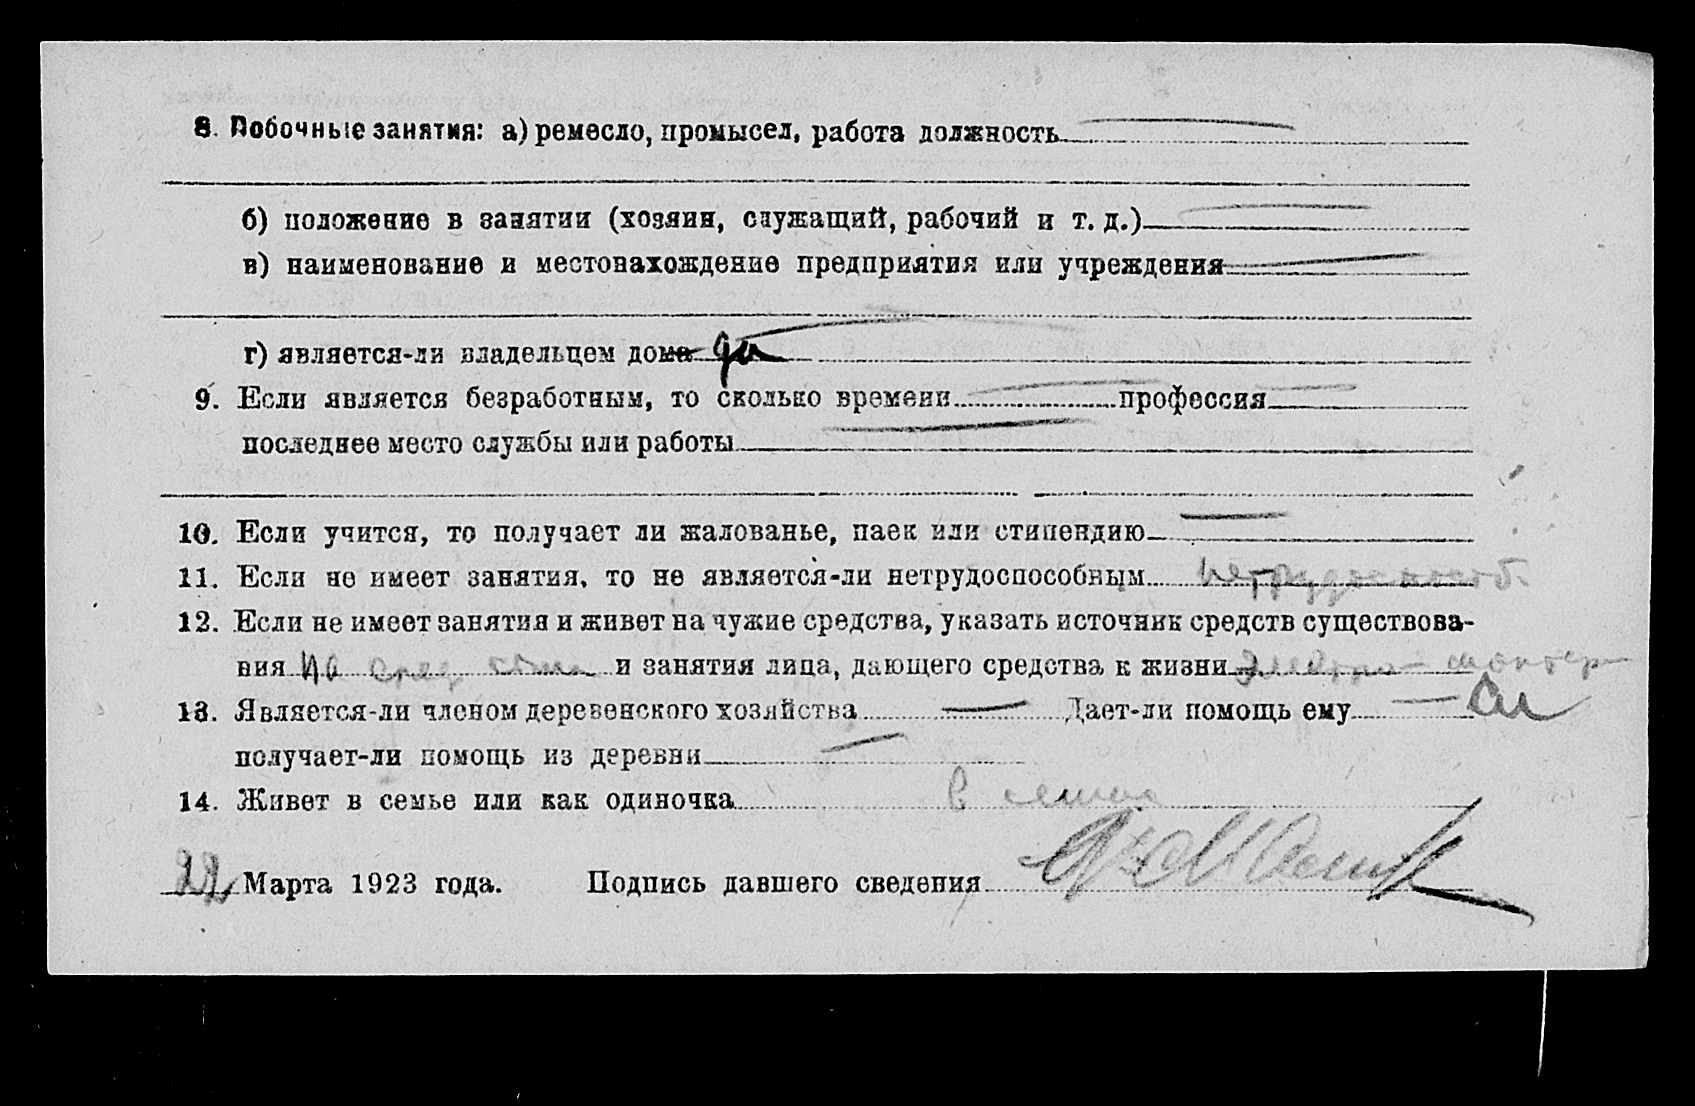 8. Побочные занятия: а) ремесло, промысел, работа должность
б) положение в занятии (хозяин, служащий, рабочий и т. д.)
в) наименование и местонахождение предприятия или учреждения
г) является-ли владельцем дома да
9. Если является безработным, то сколько времени профессия
последнее место службы или работы
10. Если учится, то получает ли жалованье, паек или стипендию
11. Если не имеет занятия, то не является-ли нетрудоспособным нетрудоспособ.
12. Если не имеет занятия и живет на чужие средства, указать источник средств существова-
ния на сред. сына и занятия лица, дающего средства к жизни электро-монтер
13. Является-ли членом деревенского хозяйства Дает-ли помощь ему
получает-ли помощь из деревни
14. Живет в семье или как одиночка в семье
22 Марта 1923 года. Подпись давшего сведения